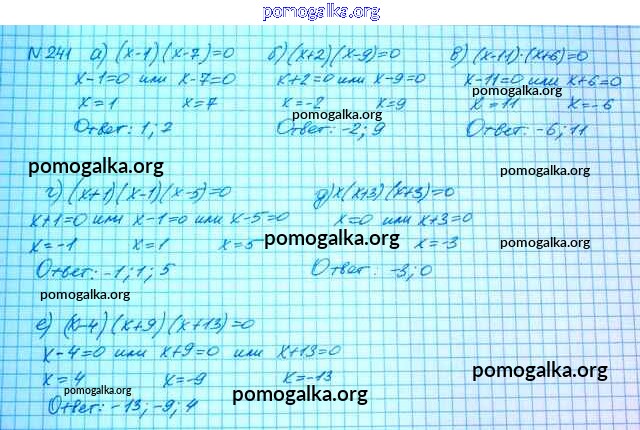 pomogalka.org
N 241 а) (x-1)(x-7)=0 б) (x+2)(x-9)=0 в) (x-11)·(x+6)=0
x-1=0 или x-7=0 x+2=0 или x-9=0 x-11=0 или x+6=0
pomogalka.org
x=1 x=7 x=-2 x=9 x=11 x=-6
pomogalka.org
Ответ: 1; 7 Ответ: -2; 9 Ответ: -6; 11
pomogalka.org pomogalka.org
г) (x+1)(x-1)(x-5)=0 д) x(x+3)(x+3)=0
x+1=0 или x-1=0 или x-5=0 x=0 или x+3=0
x=-1 x=1 x=5 pomogalka.org x=-3 pomogalka.org
Ответ: -1; 1; 5 Ответ: -3; 0
pomogalka.org
е) (x-4)(x+9)(x+13)=0
x-4=0 или x+9=0 или x+13=0
x=4 x=-9 x=-13 pomogalka.org
pomogalka.org pomogalka.org
Ответ: -13; -9; 4